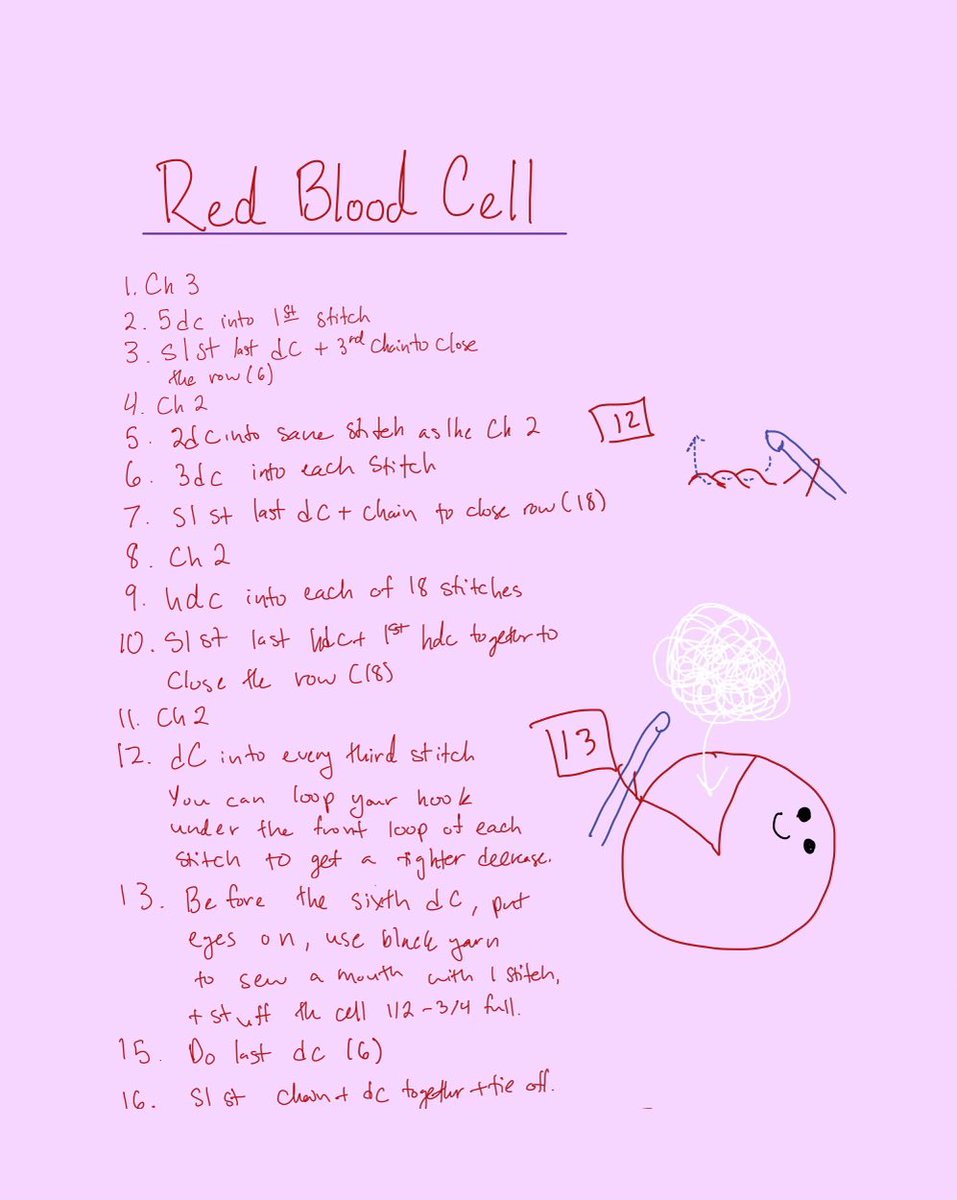 Red Blood Cell
1. Ch 3
2. 5dc into 1st stitch
3. Sl st last dc + 3rd chain to close
the row (6)
4. Ch 2
5. 2dc into same stitch as the Ch 2
6. 3dc into each stitch
7. Sl st last dc + chain to close row (18)
8. Ch 2
9. hdc into each of 18 stitches
10. Sl st last hdc + 1st hdc together to
close the row (18)
11. Ch 2
12. dc into every third stitch
You can loop your hook
under the front loop of each
stitch to get a tighter decrease.
13. Before the sixth dc, put
eyes on, use black yarn
to sew a mouth with 1 stitch,
+ stuff the cell 1/2 - 3/4 full.
15. Do last dc (6)
16. Sl st chain + dc together + tie off.
12
13